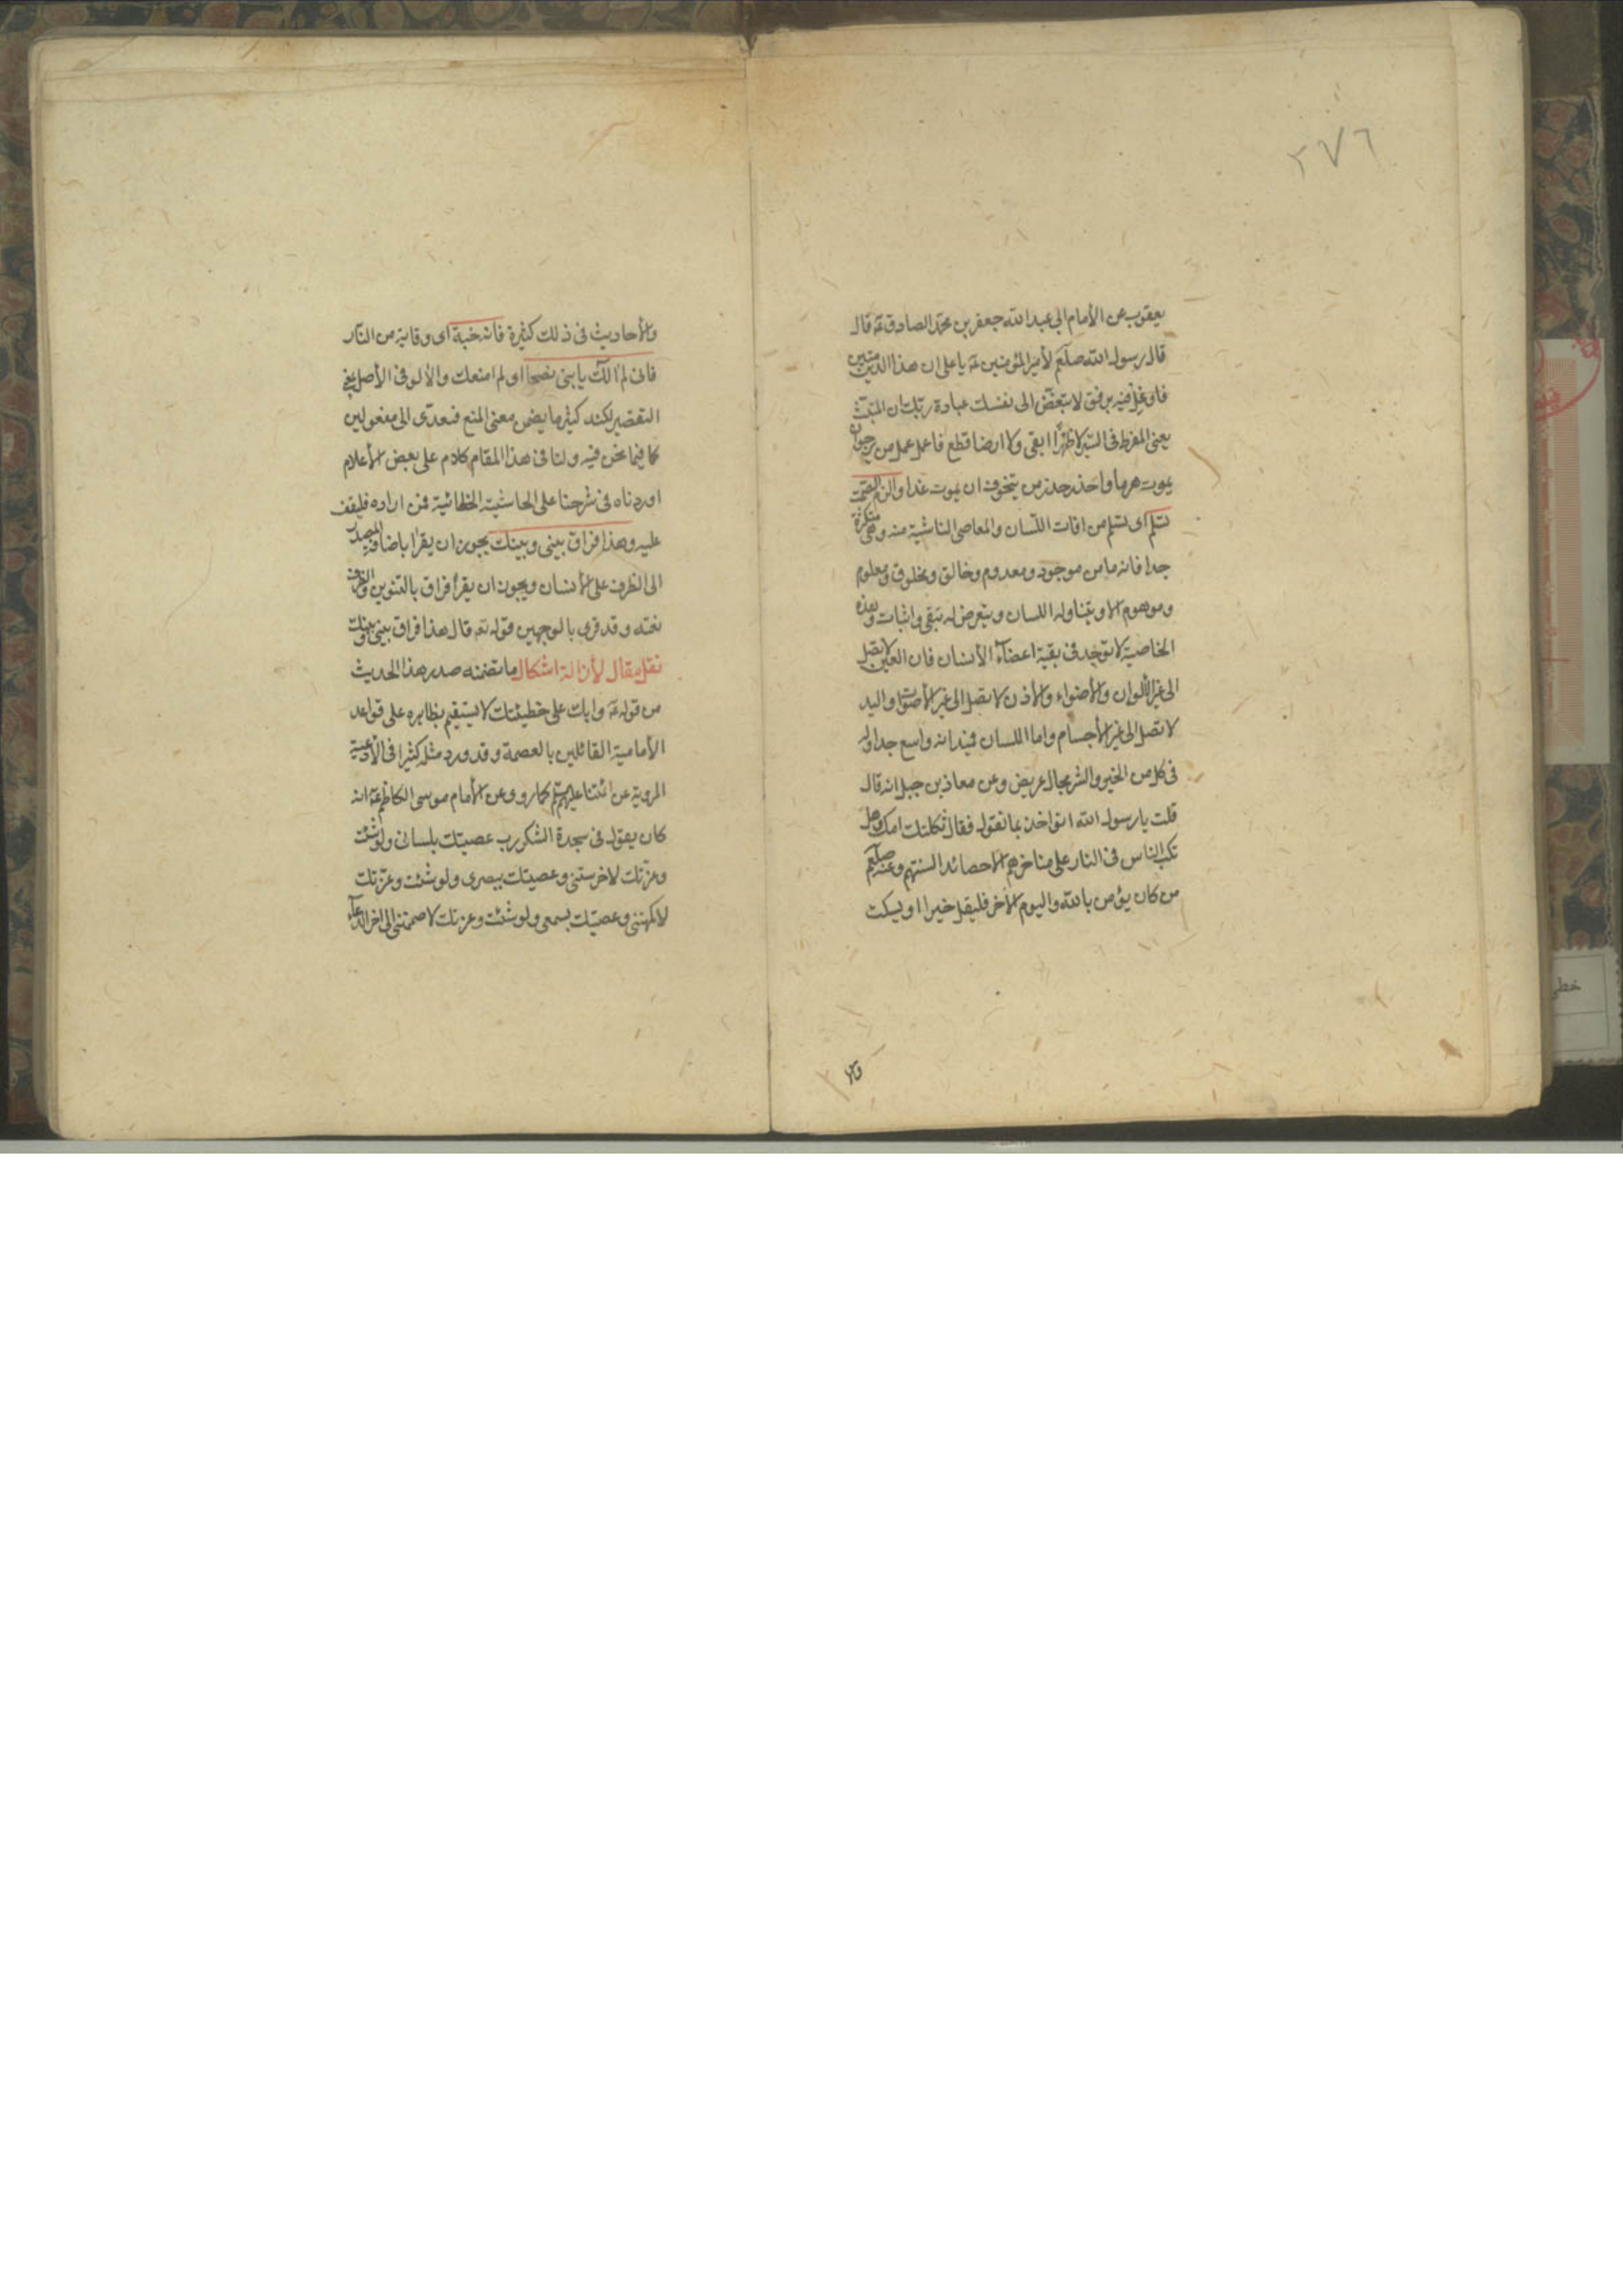 ٢٧٦
يعقوب عن الأمام ابي عبد الله جعفر بن محمد الصادق عه قال
قال رسول الله صلعم لأمير المؤمنين عه يا على ان هذا الدين متين
فاوغل فيه برفق لا تبغض الى نفسك عبادة ربك ان المنبت
يعنى المفرط فى السير لا ظهرًا ابقى ولا ارضا قطع فاعمل عمل من يرجوان
يموت هرما واحذر حذر من يتخوف ان يموت غدا والزم الصمت
تسلم اى تسلم من افات اللسان والمعاصى الناشية منه وهى متكثرة
جدا فانه ما من موجود ومعدوم وخالق ومخلوق ومعلوم
وموهوم الا ويتناوله اللسان ويتعرض له بنفى واثبات وهذه
الخاصية لا توجد فى بقية اعضاء الأنسان فان العين لا تصل
الى غير الألوان والأضواء والأذن لا تصل الى غير الأصوات واليد
لا تصل الى غير الأجسام واما اللسان فميدانه واسع جدا وله
فى كل من الخير والشر مجال عريض وعن معاذ بن جبل انه قال
قلت يا رسول الله انواخذ بما نقول فقال ثكلتك امك وهل
تكب الناس فى النار على مناخرهم الا حصائد السنتهم وعنه صلعم
من كان يؤمن بالله واليوم الأخر فليقل خيرا او ليسكت
والأحاديث فى ذلك كثيرة فانه خبة اى وقاية من النار
فانى لم الك يا بنى نصحا اى لم امنعك والألو فى الأصل
التقصير لكنه كثيرما يضمن معنى المنع فيعدى الى مفعولين
كما فيما نحن فيه ولنا فى هذا المقام كلام على بعض الأعلام
اوردناه فى شرحنا على الحاشية الخطائية فمن اراده فليقف
عليه وهذا فراق بينى وبينك يجوز ان يقرا باضافة المصدر
الى الظرف على الأتسان ويجوز ان يقرأ فراق بالتنوين والظرف
نعته وقد قرى بالوجهين قوله تعه قال هذا فراق بينى وبينك
نقل مقال لأزالة اشكال ما تضمنه صدر هذا الحديث
من قوله عه وابك على خطيئتك لا يستقيم بظاهره على قواعد
الأمامية القائلين بالعصمة وقد ورد مثله كثيرا فى الأدعية
المروية عن ائمتنا عليهم كما روى عن الأمام موسى الكاظم عه انه
كان يقول فى سجدة الشكر رب عصيتك بلسانى ولو شئت
وعزتك لاخرستنى وعصيتك ببصرى ولو شئت وعزتك
لاكمهتنى وعصيتك بسمعى ولو شئت وعزتك لاصممتنى الى اخر الدعاء